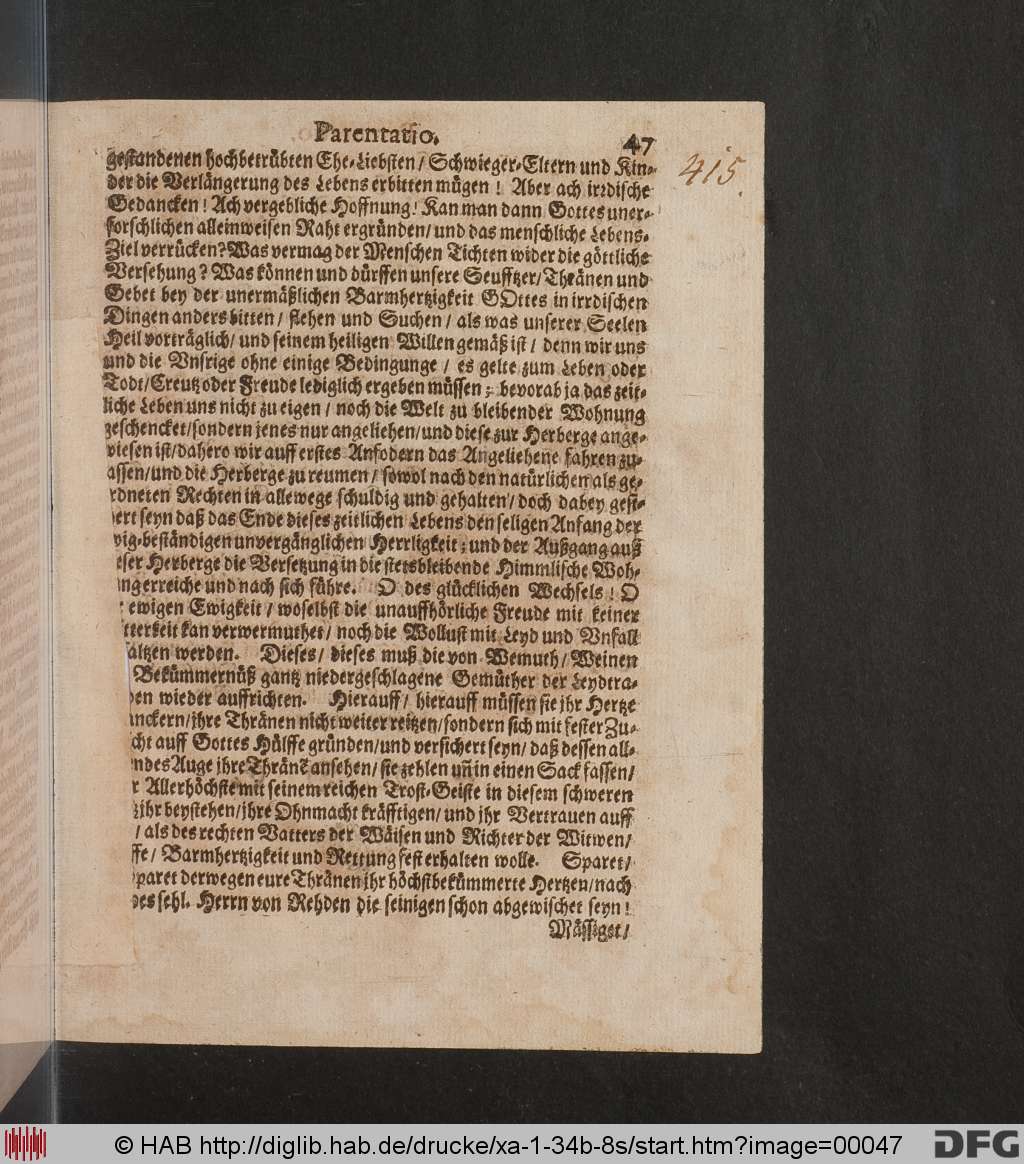 Parentatio. 47
415.
gestandenen hochbetrübten Ehe-Liebsten / Schwieger-Eltern und Kin-
der die Verlängerung des Lebens erbitten mügen ! Aber ach irrdische
Gedancken ! Ach vergebliche Hoffnung ! Kan man dann Gottes uner-
forschlichen alleinweisen Raht ergründen / und das menschliche Lebens-
Ziel verrücken? Was vermag der Menschen Tichten wider die göttliche
Versehung ? Was können und dürffen unsere Seufftzer / Thränen und
Gebet bey der unermäßlichen Barmhertzigkeit GOttes in irrdischen
Dingen anders bitten / flehen und Suchen / als was unserer Seelen
Heil vorträglich / und seinem heiligen Willen gemäß ist / denn wir uns
und die Vnsrige ohne einige Bedingunge / es gelte zum Leben oder
Todt / Creutz oder Freude lediglich ergeben müssen ; bevorab ja das zeit-
liche Leben uns nicht zu eigen / noch die Welt zu bleibender Wohnung
geschencket / sondern jenes nur angeliehen / und diese zur Herberge ange-
viesen ist / dahero wir auff erstes Anfodern das Angeliehene fahren zu-
assen / und die Herberge zu reumen / sowol nach den natürlichen als ge-
rdneten Rechten in allewege schuldig und gehalten / doch dabey gesi-
ert seyn daß das Ende dieses zeitlichen Lebens den seligen Anfang der
vig-beständigen unvergänglichen Herrligkeit ; und der Außgang auß
eser Herberge die Versetzung in die stetsbleibende Himmlische Woh-
ngerreiche und nach sich führe. O des glücklichen Wechsels ! O
ewigen Ewigkeit / woselbst die unauffhörliche Freude mit keiner
tterkeit kan verwermuthet / noch die Wollust mit Leyd und Vnfall
altzen werden. Dieses / dieses muß die von Wemuth / Weinen
Bekümmernüß gantz niedergeschlagene Gemüther der Leydtra-
en wieder auffrichten. Hierauff / hierauff müssen sie jhr Hertze
nckern / jhre Thränen nicht weiter reitzen / sondern sich mit fester Zu-
cht auff Gottes Hülffe gründen / und versichert seyn / daß dessen all-
ndes Auge jhre Thränẽ ansehen / sie zehlen uñ in einen Sack fassen /
r Allerhöchste mit seinem reichen Trost-Geiste in diesem schweren
jhr beystehen / jhre Ohnmacht kräfftigen / und jhr Vertrauen auff
/ als des rechten Vatters der Wäisen und Richter der Witwen /
ffe / Barmhertzigkeit und Rettung fest erhalten wolle. Sparet /
paret derwegen eure Thränen jhr höchstbekümmerte Hertzen / nach
es sehl. Herrn von Rehden die seinigen schon abgewischet seyn !
Mässiget /
© HAB http://diglib.hab.de/drucke/xa-1-34b-8s/start.htm?image=00047
DFG